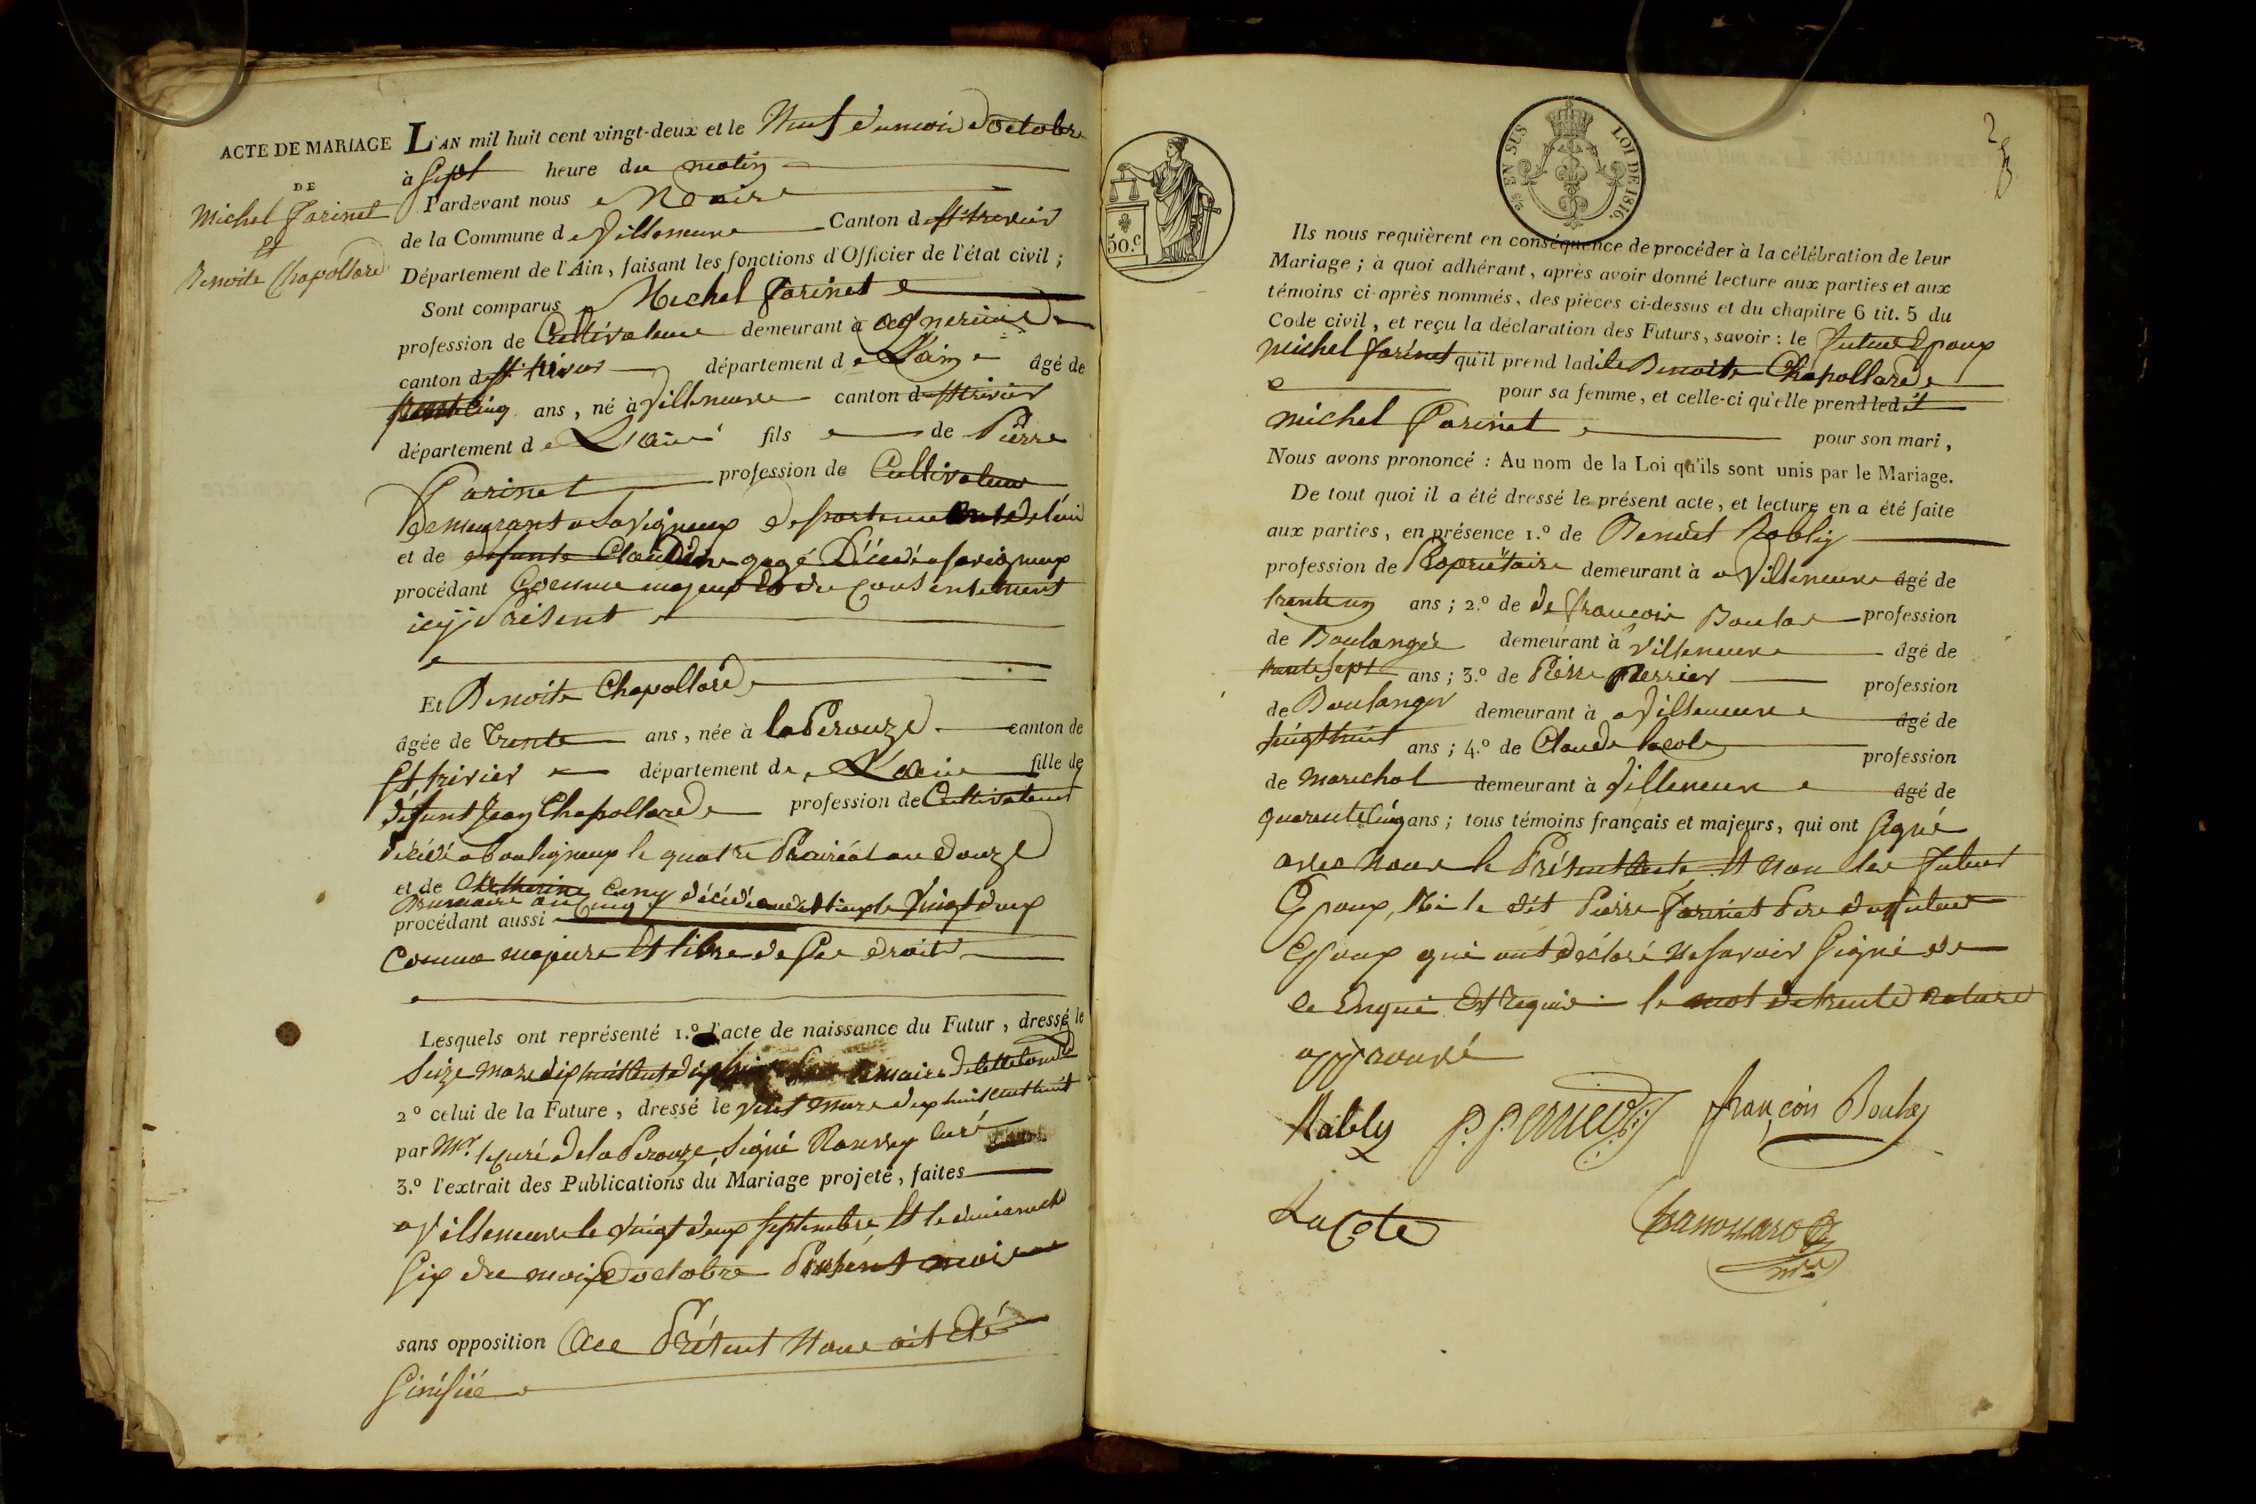 ACTE DE MARIAGE
DE
Michel Farinet
Et
Benoite Chapollard
L'AN mil huit cent vingt-deux et le Neuf du mois d'octobre
à Sept heure du matin
Pardevant nous Maire
de la Commune de Villeneuve Canton de St trivier
Département de l'Ain, faisant les fonctions d'Officier de l'état civil ;
Sont comparus Michel Farinet
profession de Cultivateur demeurant à
canton de St trivier département de L'ain âgé de
ans, né à Villeneuve canton de St trivier
département de L'ain fils de Pierre
Farinet profession de Cultivateur
demeurant a Savigneux departement de l'ain
et de defunte Claudine gagé Décédé a Savigneux
procédant Comme majeur et du Consentement
icy Présent
Et Benoite Chapollard
âgée de Trente ans, née à la Perouze canton de
St trivier département de L'ain fille de
défunt Jean Chapollard profession de Cultivateur
décédé a bouligneux le quatre Prairéal an Douze
et de Catherine Cony décédé audit lieu le Vingt deux
Brumaire an Cinq
procédant aussi
Comme majeure Et libre de Ses droits
Lesquels ont représenté 1.º l'acte de naissance du Futur, dressé le
Seize mars dix huit cent
2º celui de la Future, dressé le Vint mars dix huit cent huit
par Mr. le curé de la Perouze, Signé curé
3.º l'extrait des Publications du Mariage projeté, faites
a Villeneuve le Vingt deux Septembre Et le dimanche
Six du mois d'octobre Présent mois
sans opposition a ce Présent Nous ait Eté
Sinifiée
50.c
EN SUS
LOI DE 1816.
Ils nous requièrent en conséquence de procéder à la célébration de leur
Mariage ; à quoi adhérant, après avoir donné lecture aux parties et aux
témoins ci-après nommés, des pièces ci-dessus et du chapitre 6 tit. 5 du
Code civil, et reçu la déclaration des Futurs, savoir : le Futur Epoux
Michel Farinet qu'il prend ladite Benoite Chapollard
pour sa femme, et celle-ci qu'elle prend ledit
Michel Farinet pour son mari,
Nous avons prononcé : Au nom de la Loi qu'ils sont unis par le Mariage.
De tout quoi il a été dressé le présent acte, et lecture en a été faite
aux parties, en présence 1.º de Benoit Nobly
profession de Proprietaire demeurant à a Villeneuve âgé de
trente un ans ; 2.º de de françois Boulas profession
de Boulanger demeurant à Villeneuve âgé de
trente Sept ans ; 3.º de Pierre Perrier profession
de Boulanger demeurant à a Villeneuve âgé de
Vingt huit ans ; 4.º de Claude Lacote profession
de marechal demeurant à Villeneuve âgé de
quarante Cinq ans ; tous témoins français et majeurs, qui ont Signé
avec Nous le Présent acte Et Non les futurs
Epoux, Ni le dit Pierre Farinet Père du futur
Epoux qui ont déclaré Ne Savoir Signé de
ce Enqui Et requis. le mot de trente rature
approuvé
Nobly P. Perrier françois Boulas
LaCote